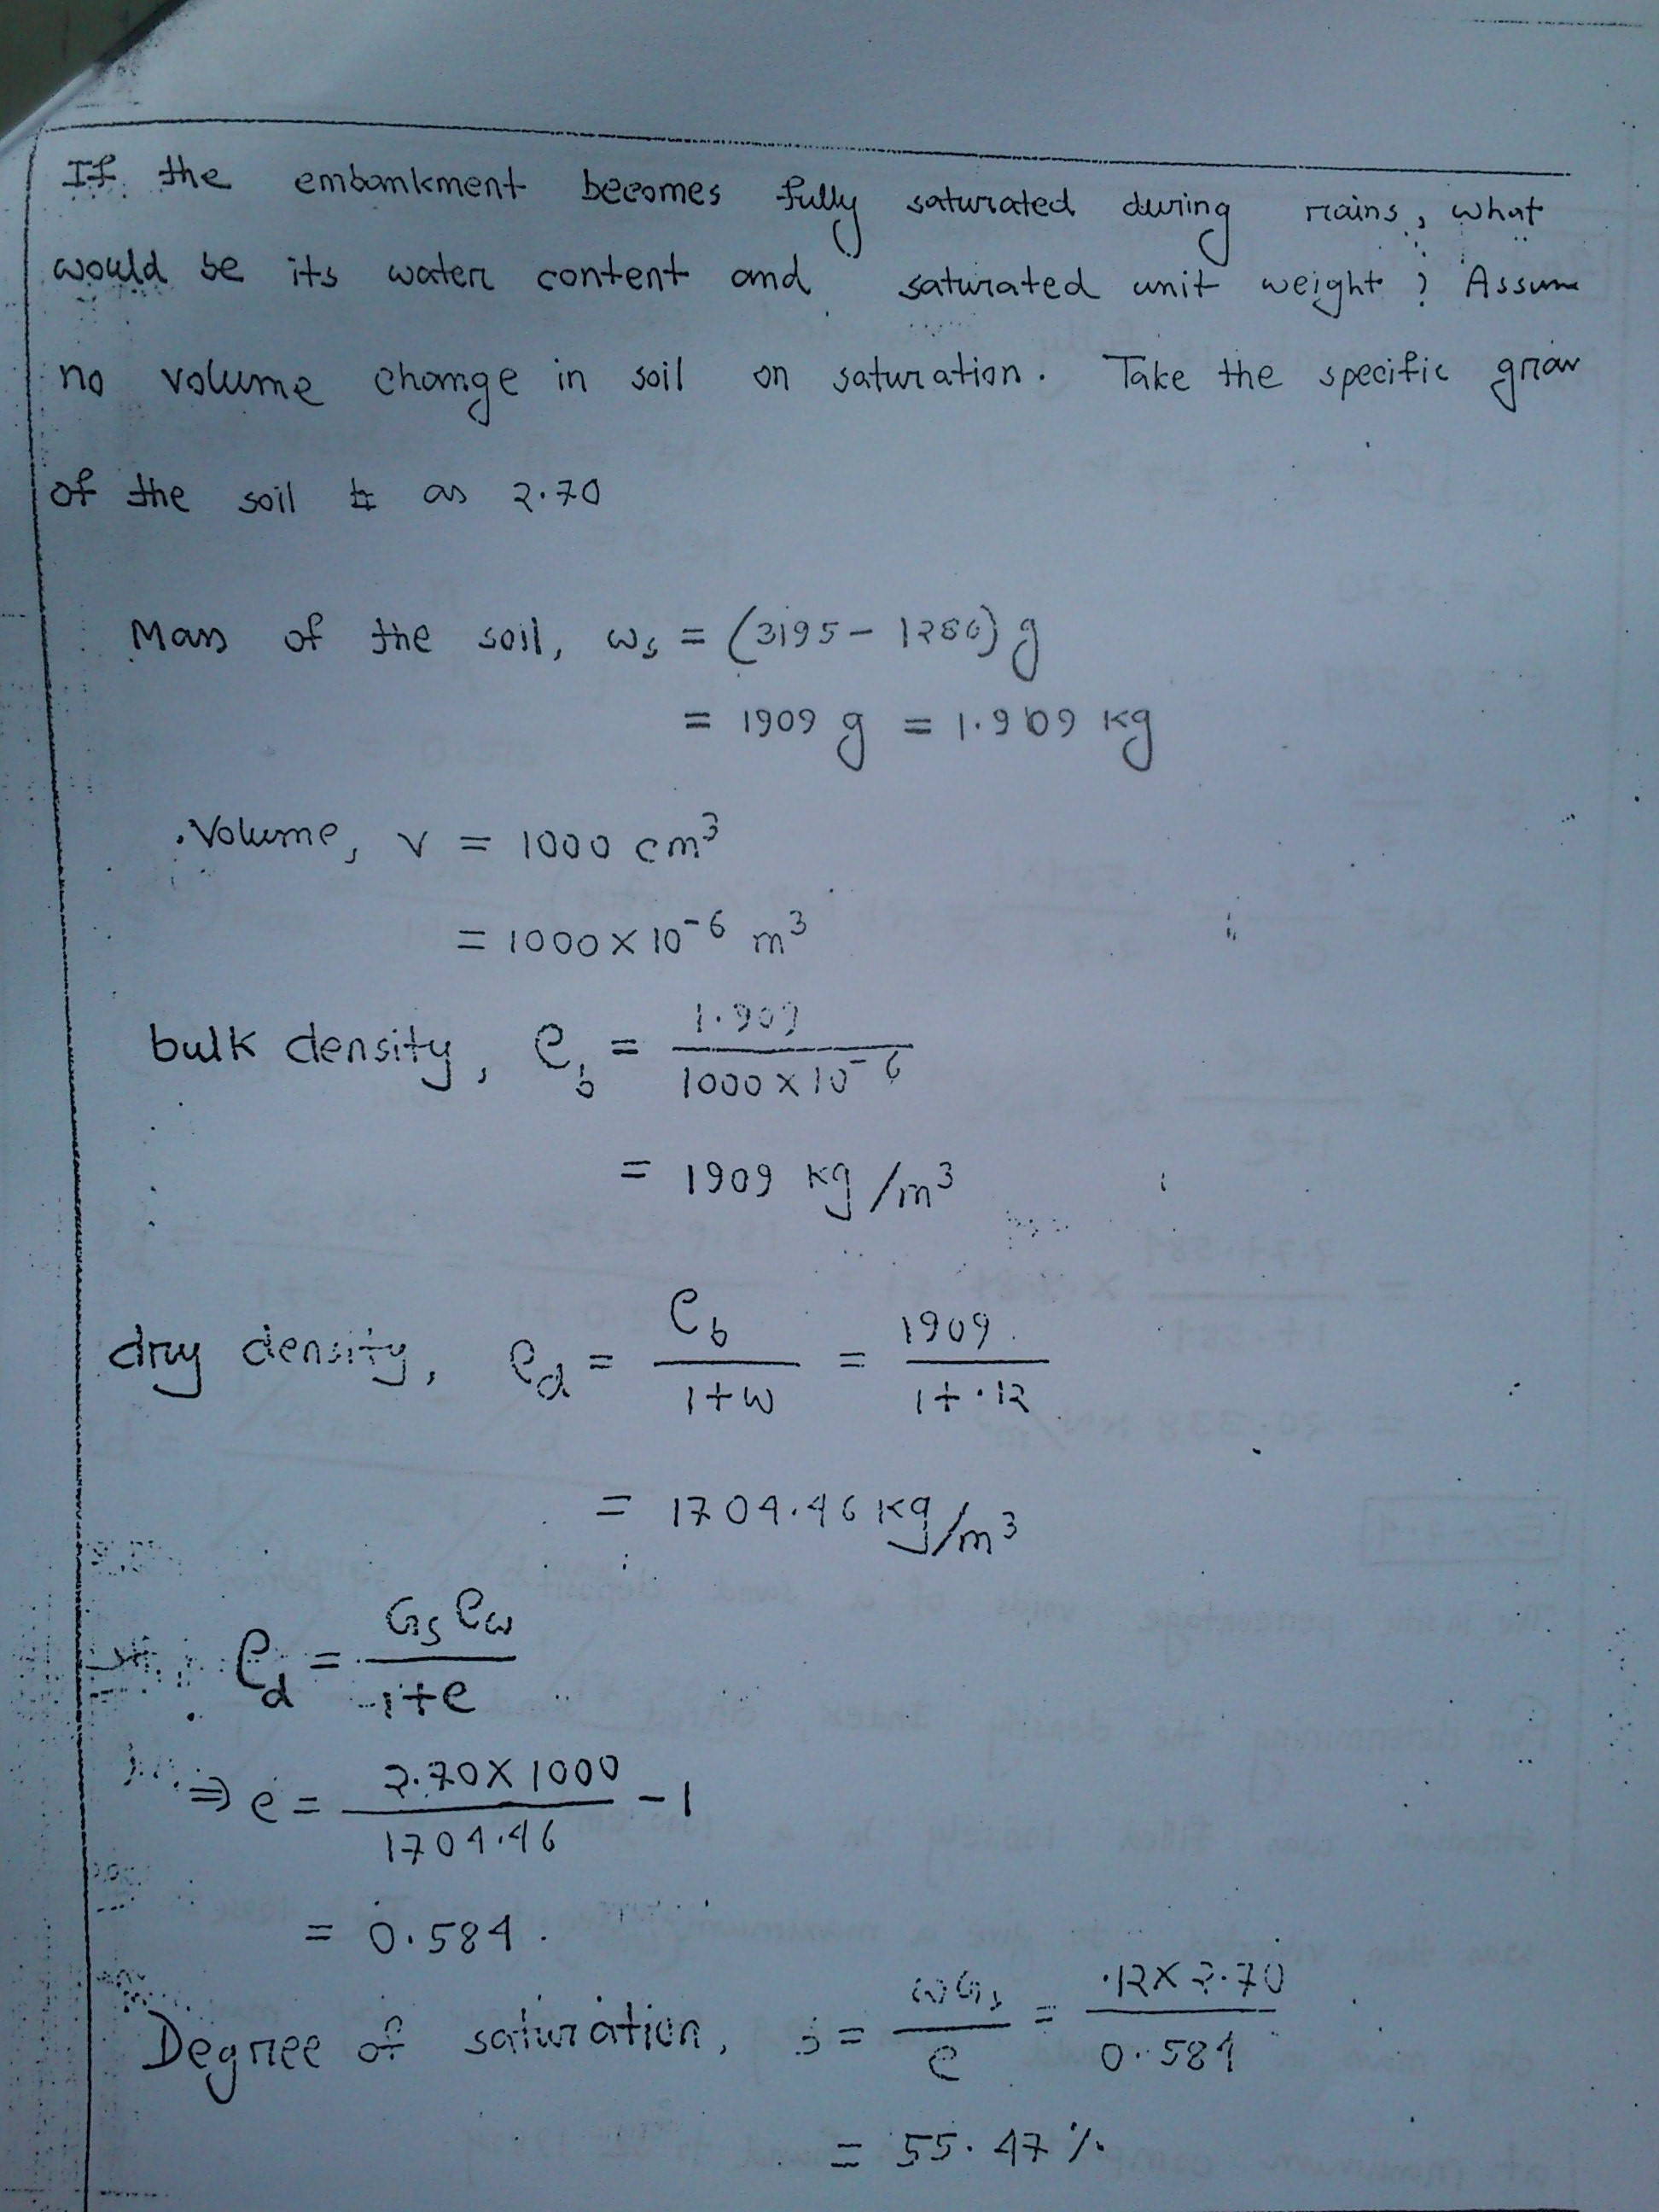 If the embankment becomes fully saturated during rains, what
would be its water content and saturated unit weight? Assume
no volume change in soil on saturation. Take the specific grav
of the soil as 2.70
Mass of the soil, ws = (3195 - 1286) g
= 1909 g = 1.909 kg
Volume, v = 1000 cm³
= 1000 × 10⁻⁶ m³
bulk density, ρb = 1.909 / 1000 × 10⁻⁶
= 1909 kg/m³
dry density, ρd = ρb / 1+w = 1909 / 1+.12
= 1704.46 kg/m³
ρd = Gs ρw / 1+e
⇒ e = 2.70 × 1000 / 1704.46 - 1
= 0.584.
Degree of saturation, s = wGs / e = .12 × 2.70 / 0.584
= 55.47 %